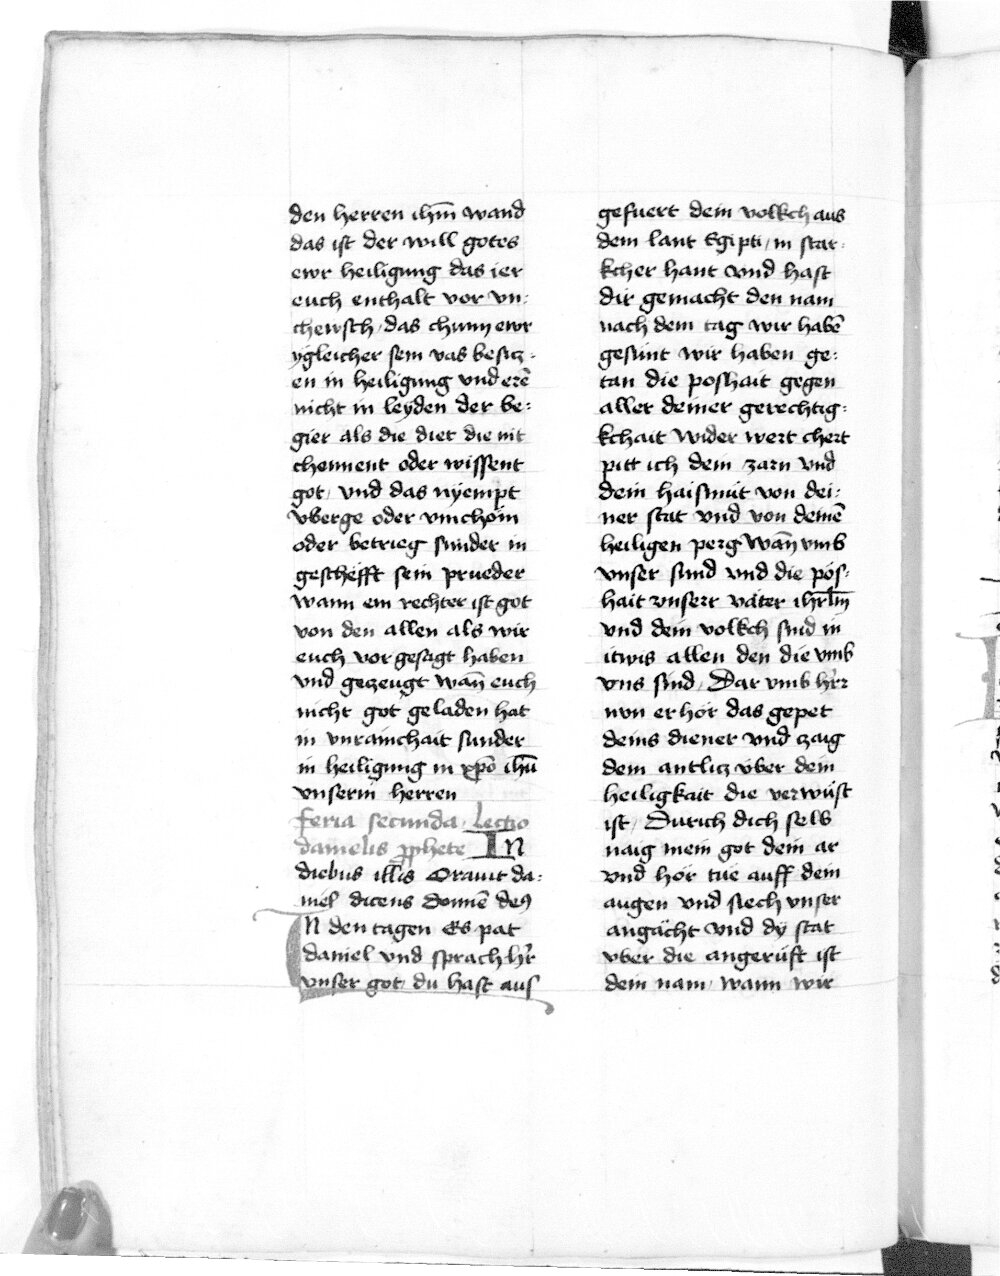 den herren ihm̄ wand
das ist der will gotes
ewr heiligung das ier
euch enthalt vor vn:
chewsch, das chunn ewr
ygleicher sein vas besicz:
en in heiligung vnd erē
nicht in leyden der be:
gier als die diet die nit
chennent oder wissent
got, vnd das nyempt
vberge oder vmchöm
oder betrieg sunder in
geschefft sein prueder
wann ein rechter ist got
von den allen als wir
euch vor gesagt haben
vnd gezeugt wañ euch
nicht got geladen hat
in vnrainchait sunder
in heiligung in xp̄o ihū
vnserm herren
feria secunda, lectio
danielis ꝓphete In
diebus illis Orauit da:
niel dicens Domē deꝰ
In den tagen Es pat
daniel vnd sprach hr̄
vnser got, du hast aus
gefuert dein volkch aus
dem lant Egipti, in star:
kcher hant vnd hast
dir gemacht den nam
nach dem tag wir habē
gesunt wir haben ge:
tan die poshait gegen
aller deiner gerechtig:
kchait wider wert chert
pitt ich dein zarn vnd
dein haismüt von dei:
ner stat vnd von deinē
heiligen perg wañ vmb
vnser sund vnd die pos:
hait vnserr väter ihrlm̄
vnd dein volkch sind in
itwis allen den die vmb
vns sind, Dar vmb hr̄r
nvn er hör das gepet
deins diener vnd zaig
dein antlicz vber dein
heiligkait die verwüst
ist, Durich dich selb
naig mein got dein ar
vnd hör tue auff dein
augen vnd siech vnser
angächt vnd dy stat
vber die angerüft ist
dein nam, wann wir